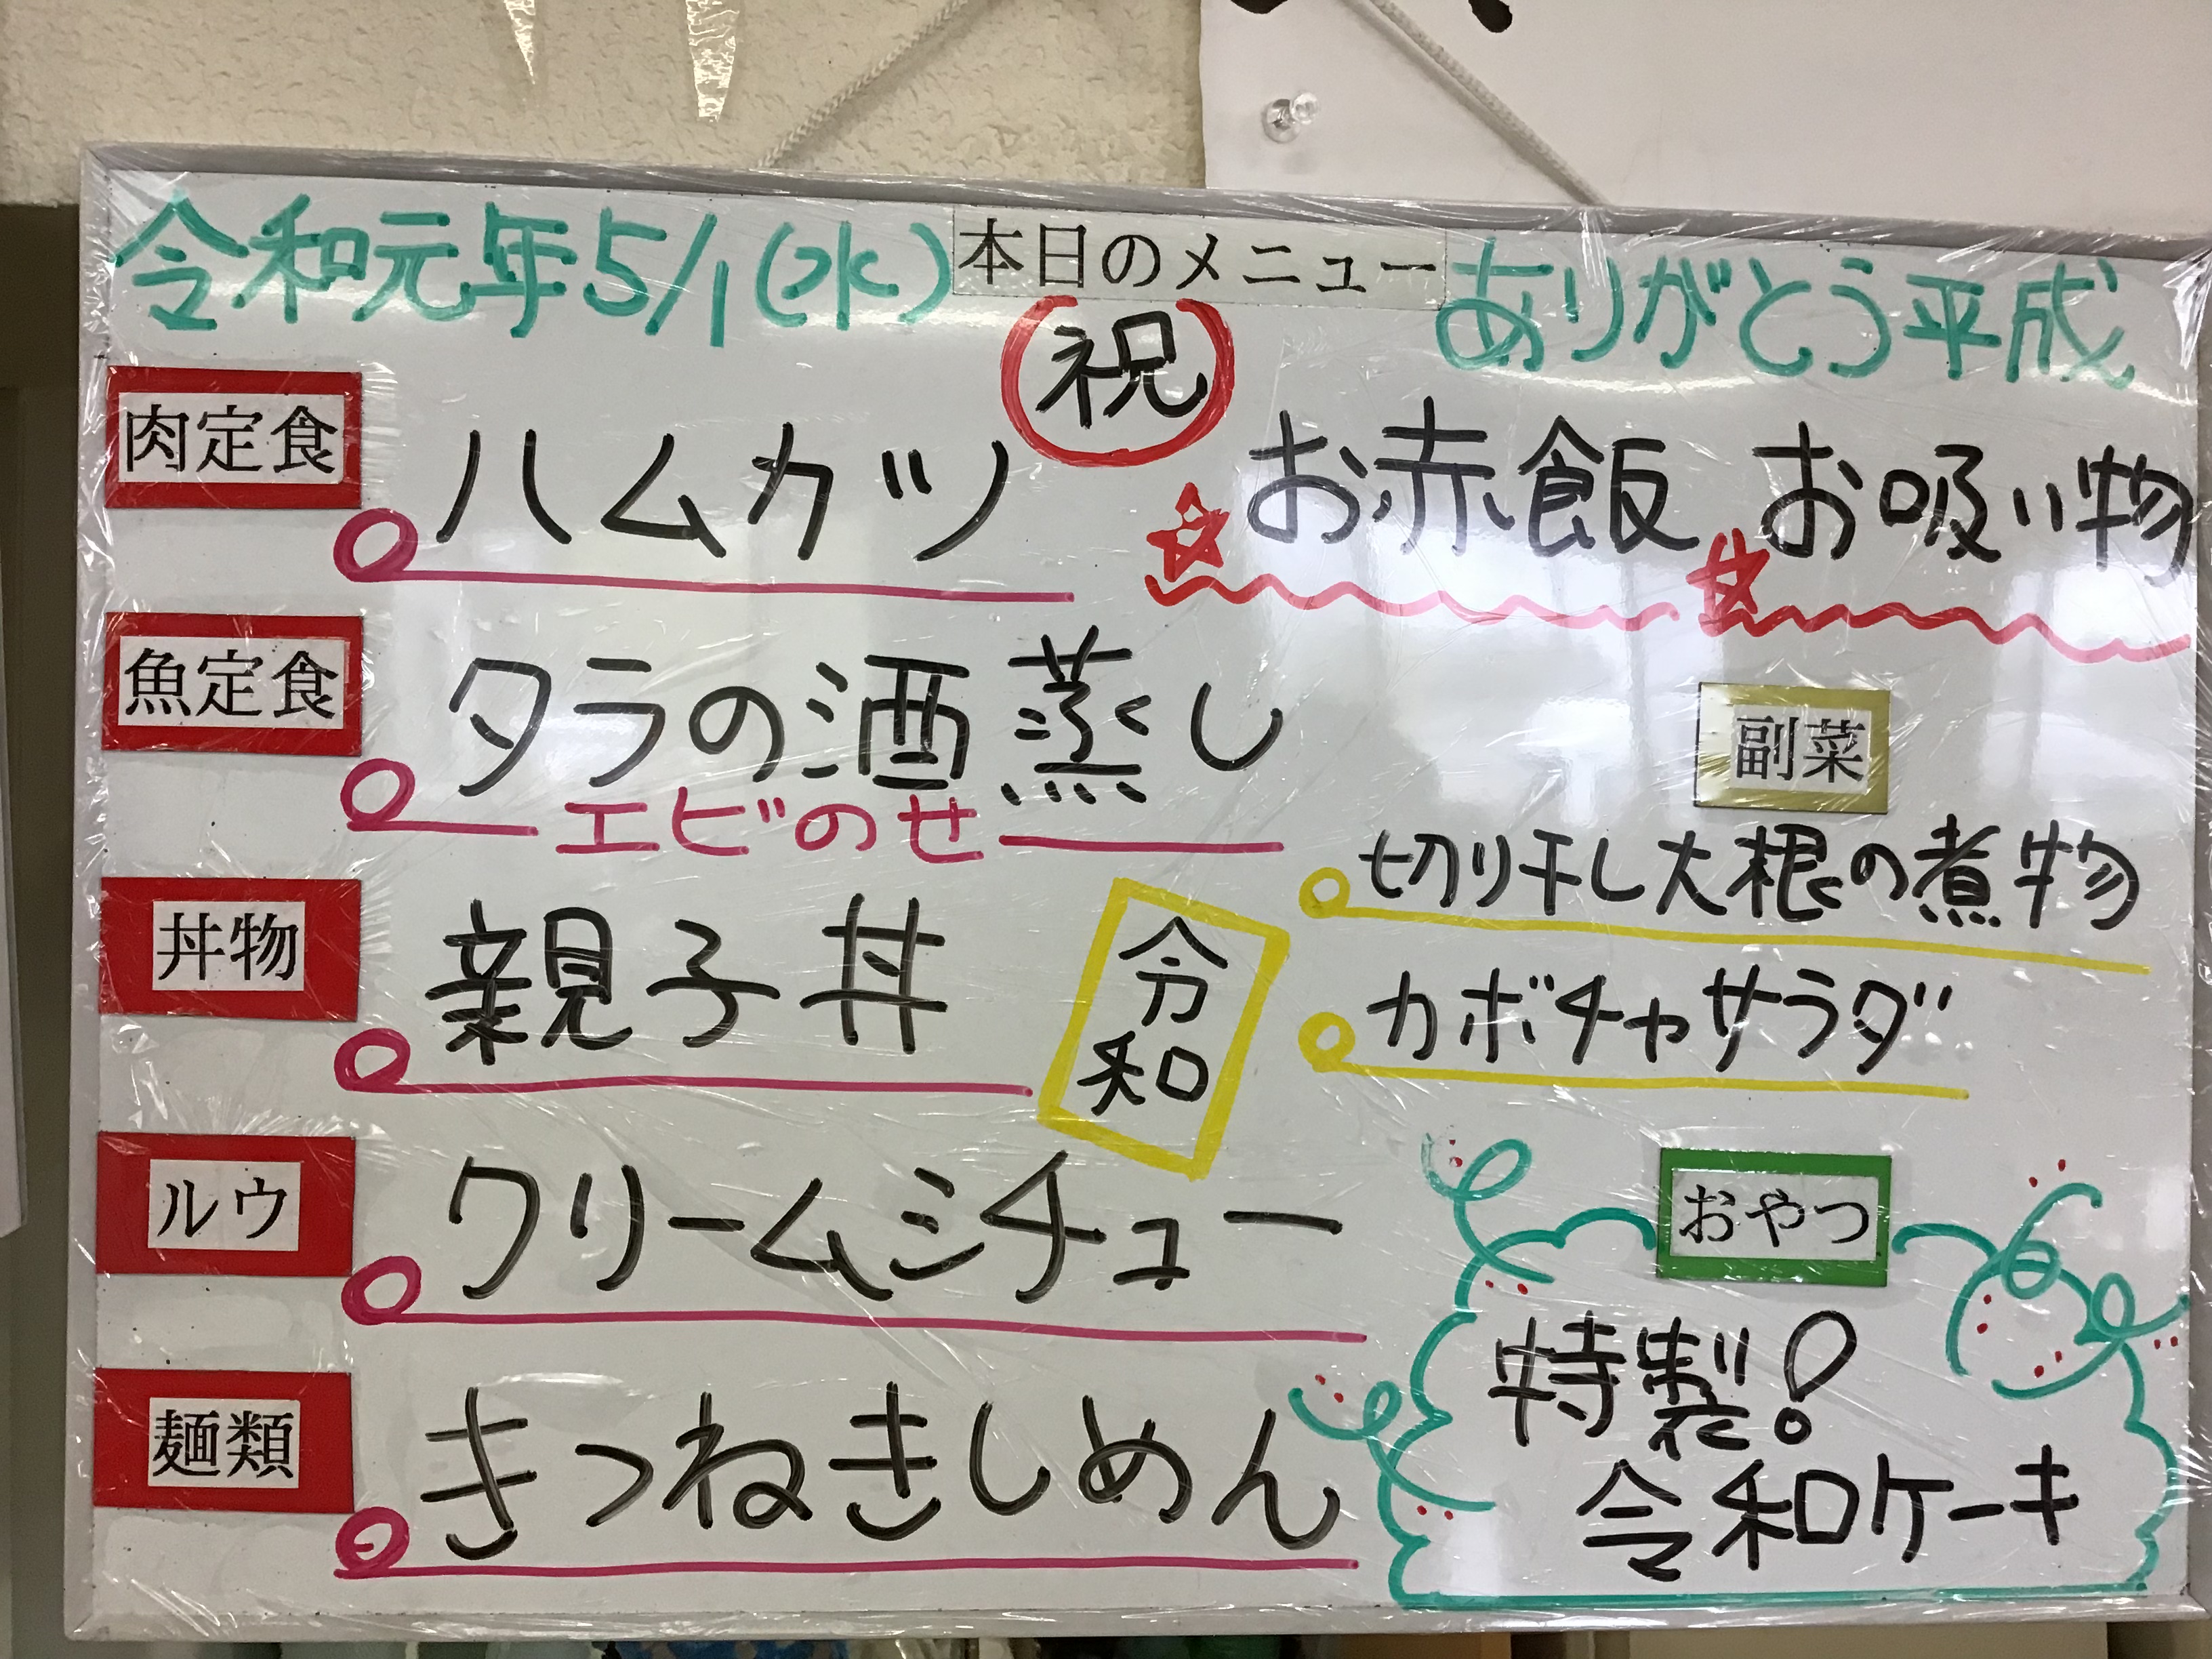 令和元年5/1(水) 本日のメニュー ありがとう平成
祝
肉定食 ハムカツ
お赤飯 お吸い物
魚定食 タラの酒蒸し
エビのせ
丼物 親子丼
令和
ルウ クリームシチュー
麺類 きつねきしめん
副菜
切り干し大根の煮物
カボチャサラダ
おやつ
特製!
令和ケーキ